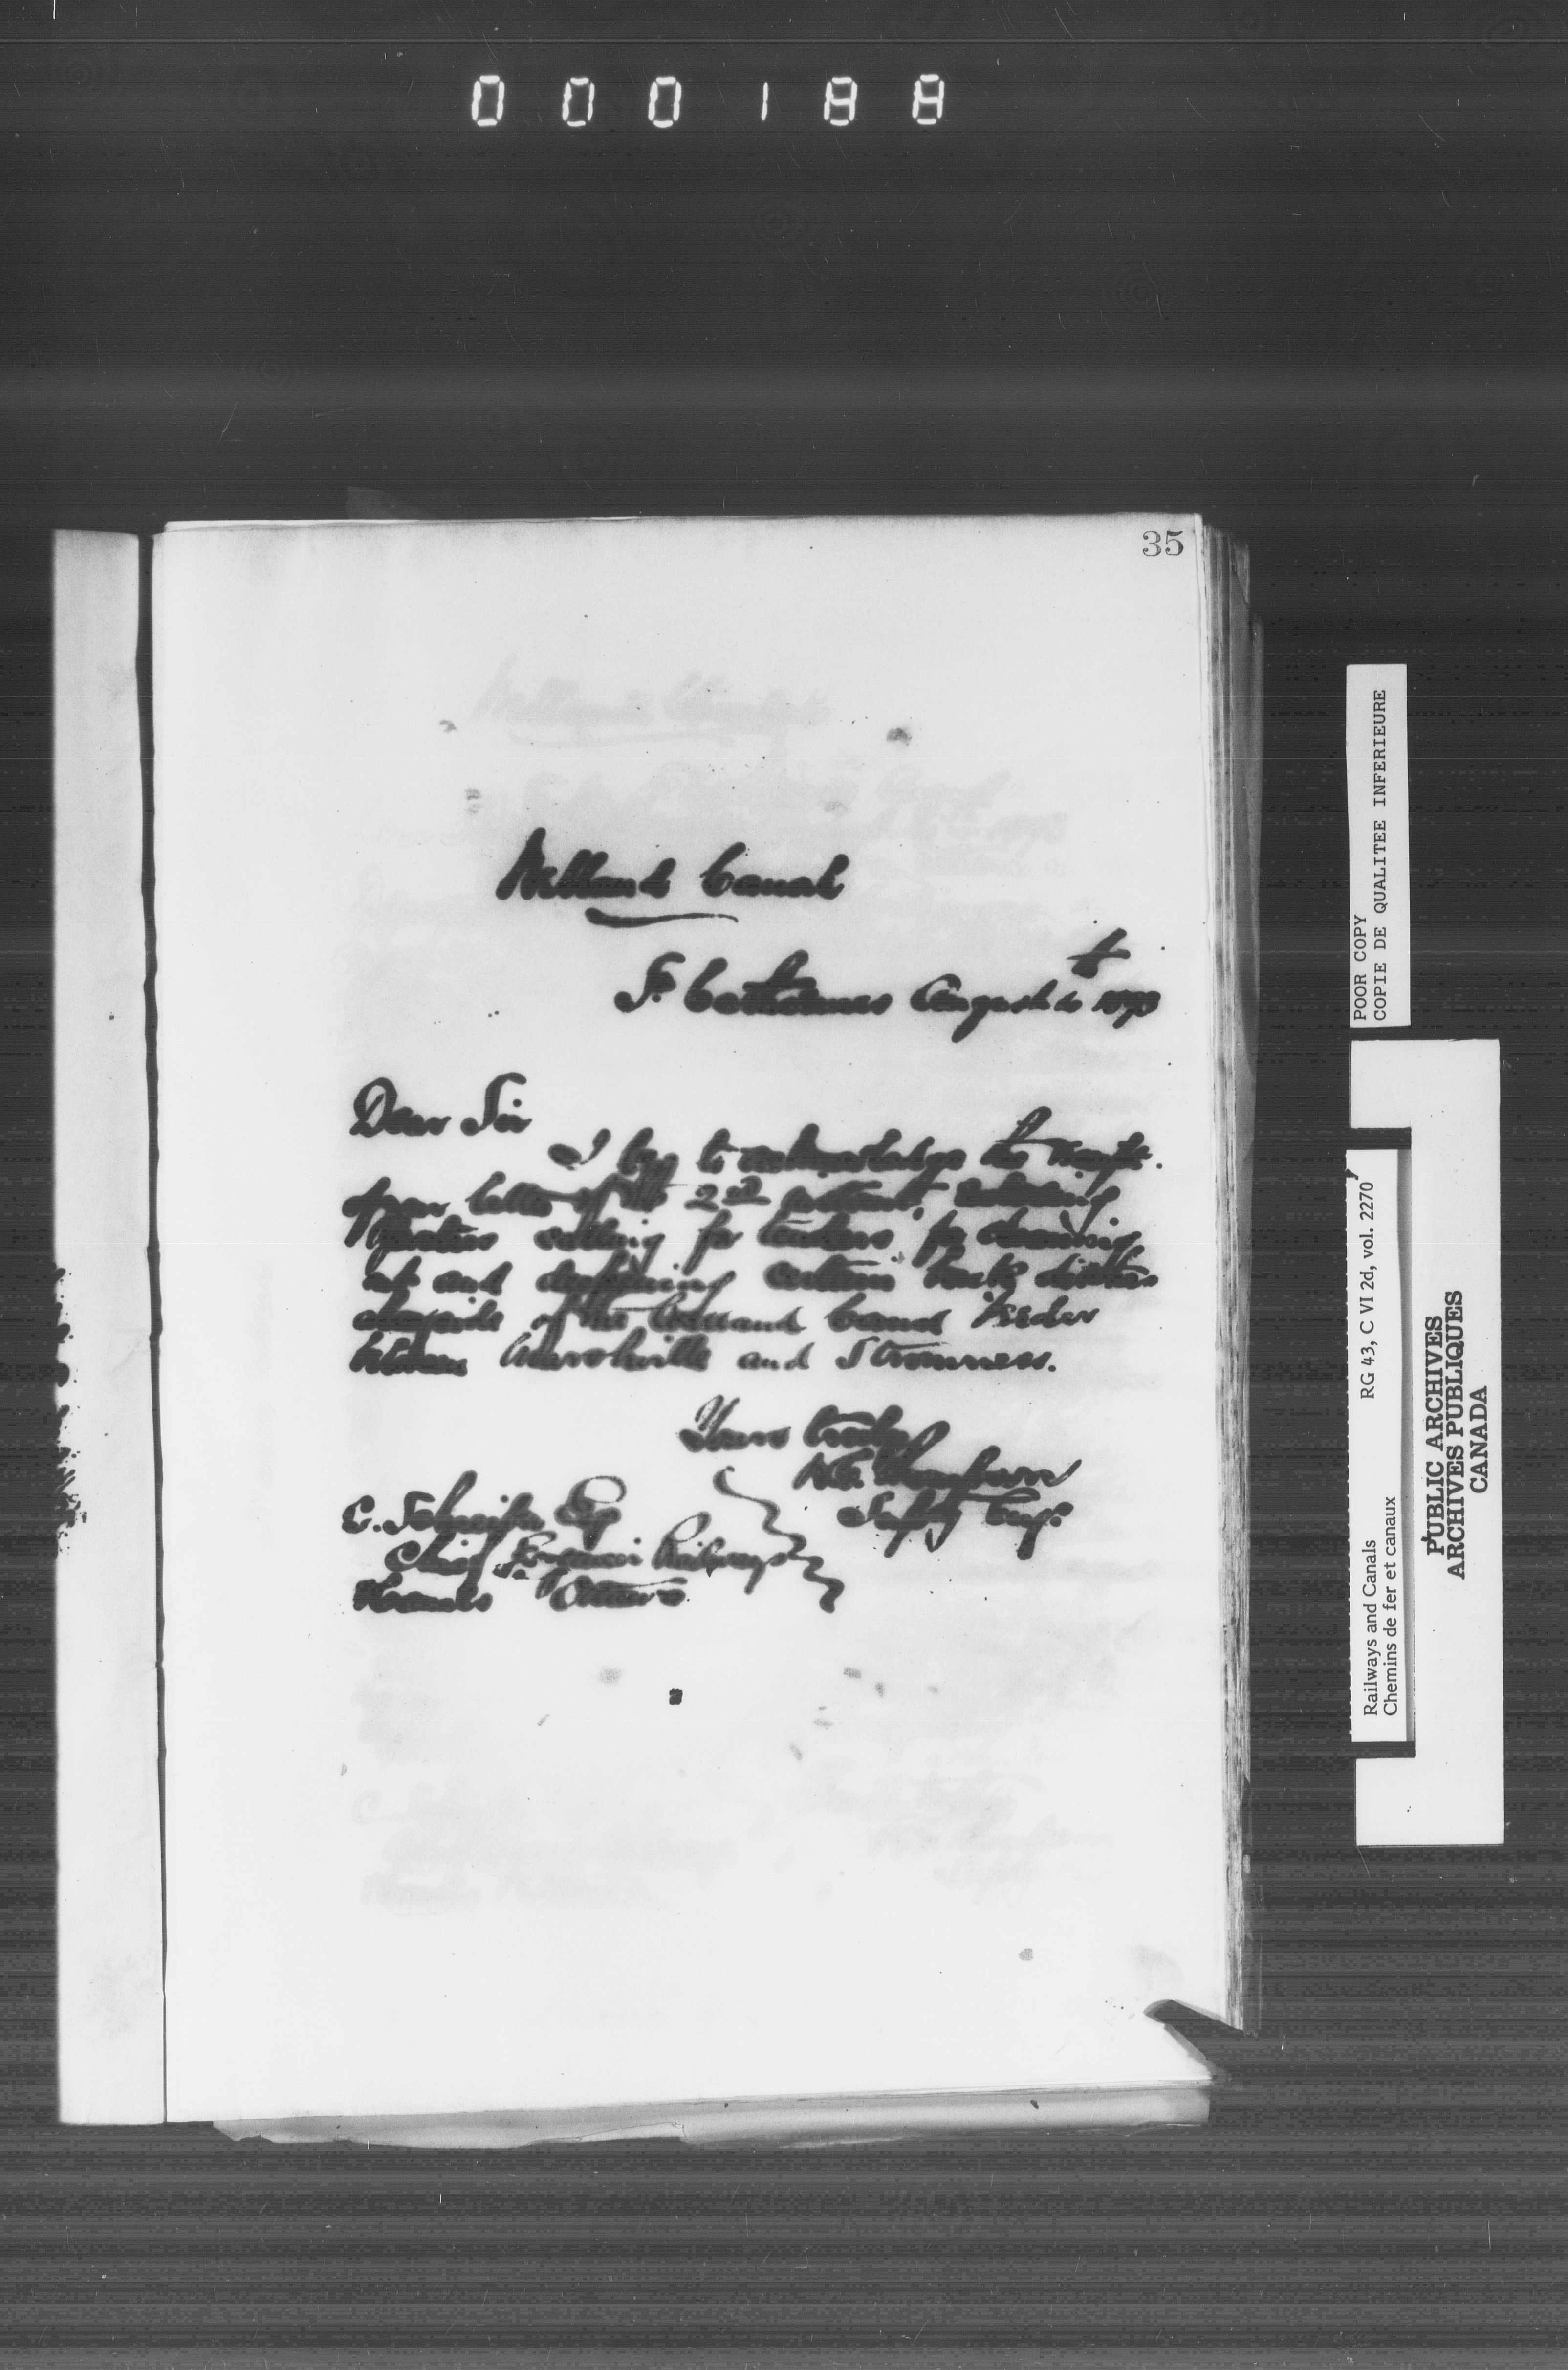 000188
35
Welland Canal
St Catharines August 1893
Dear Sir
I beg to acknowledge the receipt
of your letter of the 2nd instant, enclosing
posters calling for tenders for cleaning
out and deepening certain back ditches
alongside of the Welland Canal Feeder
between Marshville and Stromness.
Yours truly
W.G. Thompson
Supty Engr
C. Schreiber Esq
Chief Engineer Railways
& Canals Ottawa
POOR COPY
COPIE DE QUALITEE INFERIEURE
RG 43, C VI 2d, vol. 2270
Railways and Canals
Chemins de fer et canaux
PUBLIC ARCHIVES
ARCHIVES PUBLIQUES
CANADA